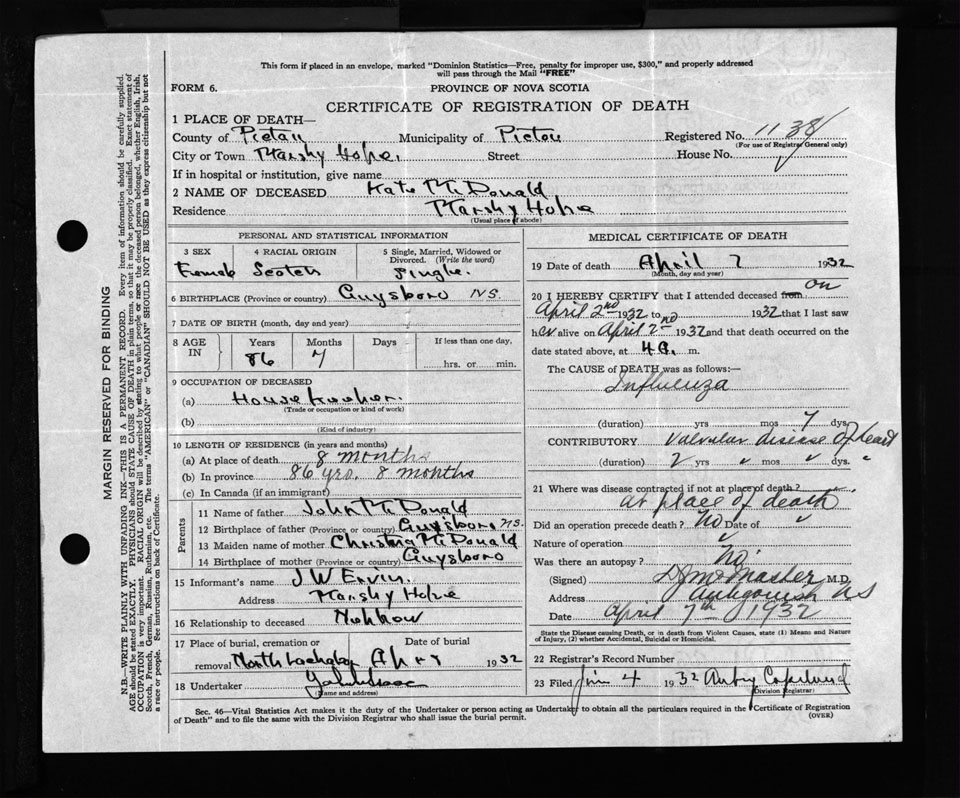 This form if placed in an envelope, marked "Dominion Statistics—Free, penalty for improper use, $300," and properly addressed
will pass through the Mail "FREE"
FORM 6. PROVINCE OF NOVA SCOTIA
CERTIFICATE OF REGISTRATION OF DEATH
1 PLACE OF DEATH—
County of Pictou Municipality of Pictou Registered No. 1138
(For use of Registrar General only)
City or Town Marshy Hope, Street House No.
If in hospital or institution, give name
2 NAME OF DECEASED Kate McDonald
Residence Marshy Hope
(Usual place of abode)
PERSONAL AND STATISTICAL INFORMATION
3 SEX 4 RACIAL ORIGIN 5 Single, Married, Widowed or
Divorced. (Write the word)
Female Scotch Single.
6 BIRTHPLACE (Province or country) Guysboro NS.
7 DATE OF BIRTH (month, day and year)
8 AGE IN Years Months Days If less than one day,
86 7 hrs. or min.
9 OCCUPATION OF DECEASED
(a) Housekeeper.
(Trade or occupation or kind of work)
(b)
(Kind of industry)
10 LENGTH OF RESIDENCE (in years and months)
(a) At place of death 8 months
(b) In province 86 yrs. 8 months
(c) In Canada (if an immigrant)
Parents
11 Name of father John McDonald
12 Birthplace of father (Province or country) Guysboro NS.
13 Maiden name of mother Christena McDonald
14 Birthplace of mother (Province or country) Guysboro
15 Informant's name J W Ervin.
Address Marshy Hope
16 Relationship to deceased
17 Place of burial, cremation or Date of burial
removal North Lochaber Apr 9 1932
18 Undertaker
(Name and address)
MEDICAL CERTIFICATE OF DEATH
19 Date of death April 7 1932
(Month, day and year)
20 I HEREBY CERTIFY that I attended deceased from on
April 2nd 1932 to nd 1932 that I last saw
her alive on April 2 1932 and that death occurred on
date stated above, at 4 a. m.
The CAUSE of DEATH was as follows:—
Influenza
(duration) yrs mos 7 dys.
CONTRIBUTORY Valvular disease of heart
(duration) 2 yrs " mos " dys. "
21 Where was disease contracted if not at place of death?
at place of death
Did an operation precede death? No Date of "
Nature of operation "
Was there an autopsy? No.
(Signed) D J McMaster M.D.
Address Antigonish NS
Date April 7th 1932
State the Disease causing Death, or in death from Violent Causes, state (1) Means and Nature
of Injury, (2) whether Accidental, Suicidal or Homicidal.
22 Registrar's Record Number
23 Filed 4 1932 Copeland
Division Registrar)
Sec. 46—Vital Statistics Act makes it the duty of the Undertaker or person acting as Undertaker to obtain all the particulars required in the Certificate of Registration
of Death" and to file the same with the Division Registrar who shall issue the burial permit. (OVER)
MARGIN RESERVED FOR BINDING
N.B.—WRITE PLAINLY WITH UNFADING INK—THIS IS A PERMANENT RECORD. Every item of information should be carefully supplied.
AGE should be stated EXACTLY. PHYSICIANS should STATE CAUSE OF DEATH in plain terms, so that it may be properly classified. Exact statement of
OCCUPATION is very important. RACIAL ORIGIN will be described by stating to what people or race the deceased person belonged, whether English, Irish,
Scotch, French, German, Russian, Ruthenian, etc. The terms "AMERICAN" or "CANADIAN" SHOULD NOT BE USED as they express citizenship but not
a race or people. See instructions on back of Certificate.